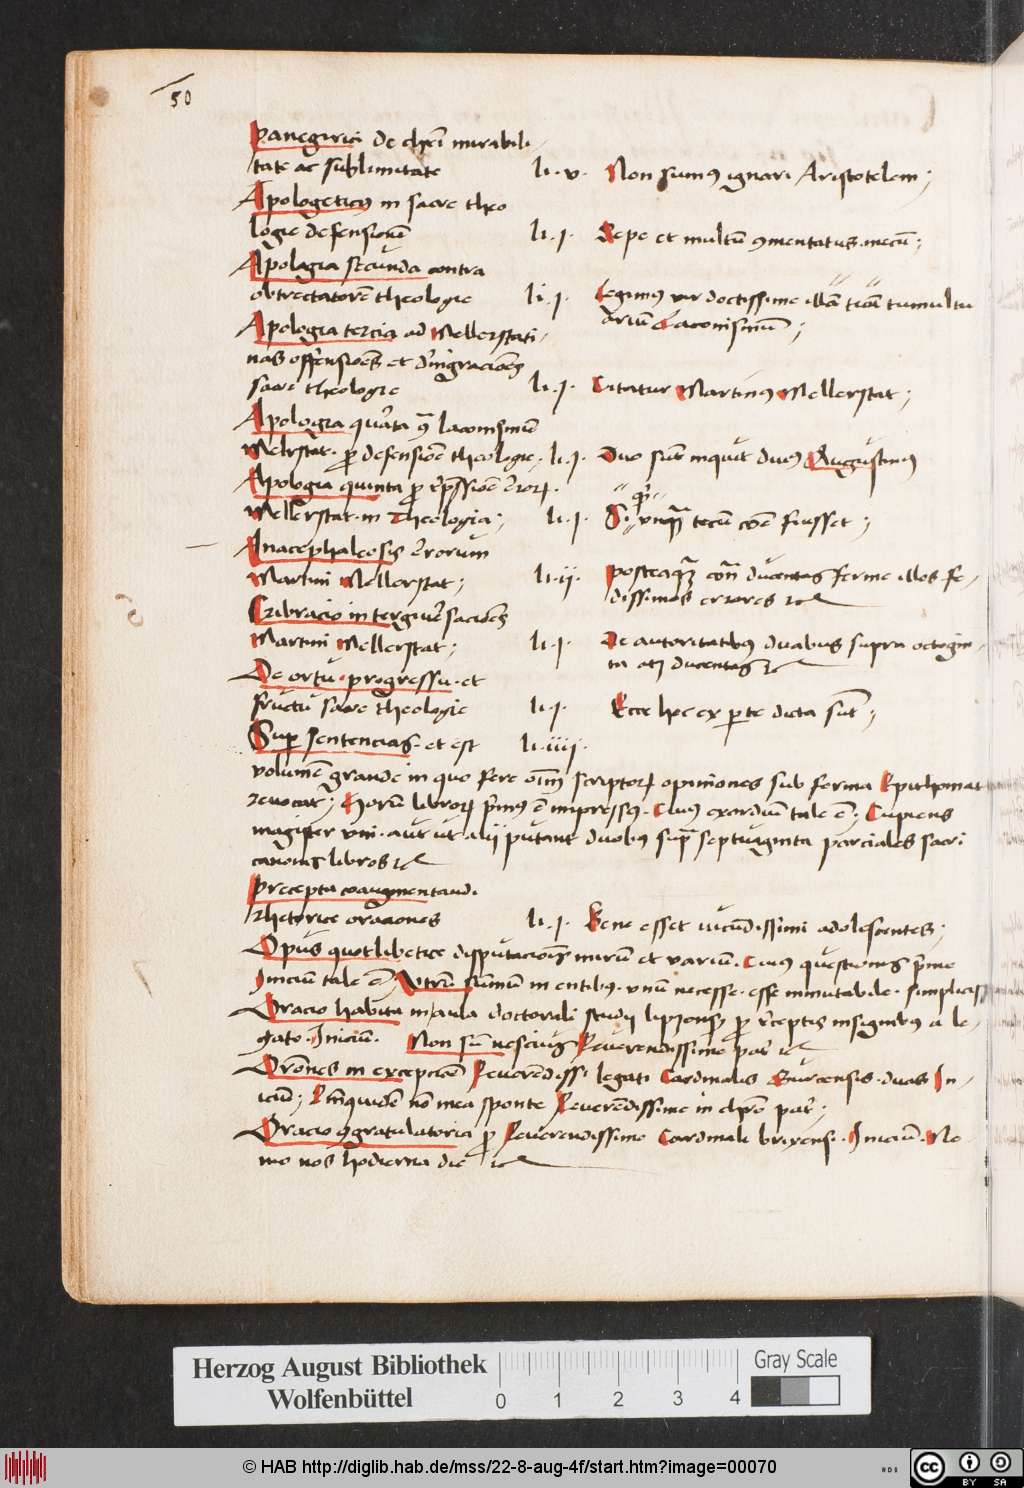 50
Panegirici de christi mirabili-
tate ac sublimitate li. v. Non sumus ignari Aristotelem;
Apologeticus in sacre theo
logie defensionem li. j. Sepe et multum commentatus mecum;
Apologia secunda contra
obtrectatorem theologie li. j. Legimus vir doctissime illam tuam tumultu
arium Laconismum;
Apologia tercia ad Mellerstati-
nas offensiones et denigraciones
sacre theologie li. j. Citatur Martinus Mellerstat;
Apologia quarta contra laconismum
Melrstat. pro defensione theologie. li. j. Duo sunt inquit duus Augustinus
Apologia quinta pro repressione errorum
Mellerstat. in Theologia; li. j. Si unquam tecum esse fuisset;
Anacephaleosis errorum
Martini Mellerstat; li. ij. Posteaquam ducentas ferme illos fe-
dissimos errores
Cribracio in tergiversaciones
Martini Mellerstat; li. j. De autoritatibus duabus supra octogin-
ta atque ducentas
De ortu. progressu. et
fructu sacre theologie li. j. Ecce hec ex parte dicta sunt;
Super sentencias. et est li. iiij.
volumen grande in quo fere omnium scriptorum opiniones sub forma Epithomat
revocat; Horum librorum primus est impressus. Cuius exordium tale est; Cupiens
magister uni. aut ut alij putant duobus supra septuaginta parciales sacri
canonis libros
Precepta coaugmentandi
rhetorice oraciones li. j. Bene esset iucundissimi adolescentes;
Opus quotlibetice disputacionis mirum et varium. Cuius questionis prime
Inicium tale est; Utrum summum in entibus. unum necesse. esse inmutabile. simpliciss
Oracio habita in aula doctorali studii lipzensis pro receptis insignibus a le-
gato. Inicium. Non sum nescius Reverendissime pater
Orationes in excepcionem Reverendissimi legati Cardinalis Gurcensis. duas In-
icium; Etenim quidem non mea sponte Reverendissime in christo pater;
Oracio congratulatoria pro Reverendissimo Cardinali brixensi. Inicium. No
mo nos hodierna die
Herzog August Bibliothek
Wolfenbüttel
0 1 2 3 4
Gray Scale
© HAB http://diglib.hab.de/mss/22-8-aug-4f/start.htm?image=00070
HAB
CC BY SA